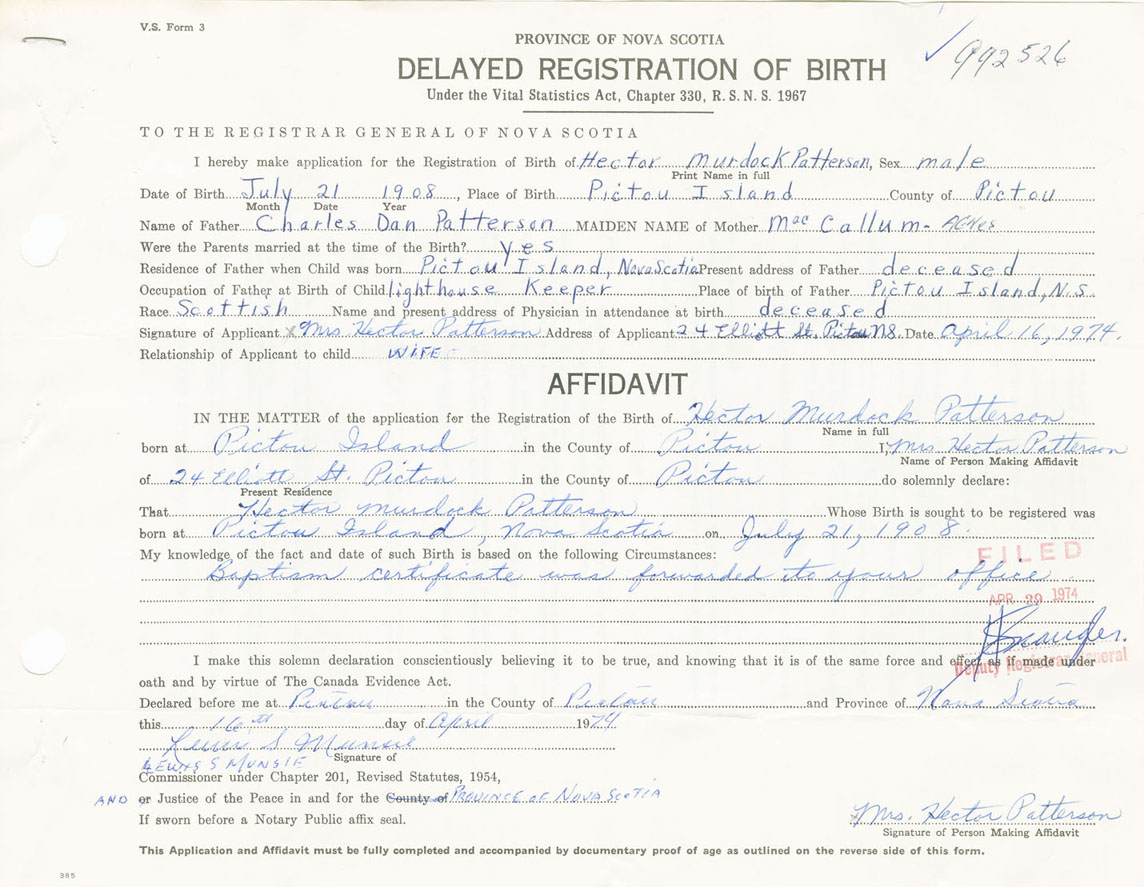 V.S. Form 3
PROVINCE OF NOVA SCOTIA
992526
DELAYED REGISTRATION OF BIRTH
Under the Vital Statistics Act, Chapter 330, R.S.N.S. 1967
TO THE REGISTRAR GENERAL OF NOVA SCOTIA
I hereby make application for the Registration of Birth of Hector Murdock Patterson, Sex male
Print Name in full
Date of Birth July 21 1908, Place of Birth Pictou Island County of Pictou
Month Date Year
Name of Father Charles Dan Patterson MAIDEN NAME of Mother Mac Callum - AGNES
Were the Parents married at the time of the Birth? yes
Residence of Father when Child was born Pictou Island, Nova Scotia Present address of Father deceased
Occupation of Father at Birth of Child lighthouse Keeper Place of birth of Father Pictou Island, N.S.
Race Scottish Name and present address of Physician in attendance at birth deceased
Signature of Applicant x Mrs. Hector Patterson Address of Applicant 24 Elliott St. Pictou NS. Date April 16, 1974.
Relationship of Applicant to child WIFE
AFFIDAVIT
IN THE MATTER of the application for the Registration of the Birth of Hector Murdock Patterson
Name in full
born at Pictou Island in the County of Pictou I, Mrs Hector Patterson
Name of Person Making Affidavit
of 24 Elliott St. Pictou in the County of Pictou do solemnly declare:
Present Residence
That Hector Murdock Patterson Whose Birth is sought to be registered was
born at Pictou Island, Nova Scotia on July 21, 1908.
My knowledge of the fact and date of such Birth is based on the following Circumstances:
FILED
Baptism certificate was forwarded to your office
APR 29 1974
I make this solemn declaration conscientiously believing it to be true, and knowing that it is of the same force and effect as if made under
Deputy Registrar General
oath and by virtue of The Canada Evidence Act.
Declared before me at Pictou in the County of Pictou and Province of Nova Scotia
this 16th day of April 1974
Lewis S Munsie
Signature of
LEWIS S MUNSIE
Commissioner under Chapter 201, Revised Statutes, 1954,
AND or Justice of the Peace in and for the County of PROVINCE OF NOVA SCOTIA
If sworn before a Notary Public affix seal.
x Mrs. Hector Patterson
Signature of Person Making Affidavit
This Application and Affidavit must be fully completed and accompanied by documentary proof of age as outlined on the reverse side of this form.
385